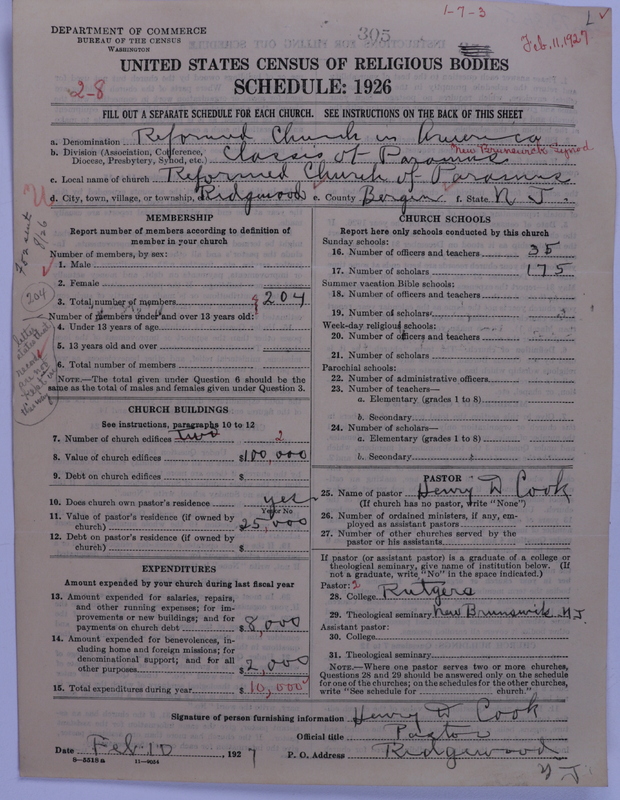 1-7-3
305
Feb. 11, 1927
DEPARTMENT OF COMMERCE
BUREAU OF THE CENSUS
WASHINGTON
UNITED STATES CENSUS OF RELIGIOUS BODIES
2-8
SCHEDULE: 1926
FILL OUT A SEPARATE SCHEDULE FOR EACH CHURCH. SEE INSTRUCTIONS ON THE BACK OF THIS SHEET
a. Denomination Reformed Church in America
b. Division (Association, Conference, Diocese, Presbytery, Synod, etc.) Classis of Paramus New Brunswick Synod
c. Local name of church Reformed Church of Paramus
d. City, town, village, or township, Ridgewood e. County Bergen f. State N J.
MEMBERSHIP
Report number of members according to definition of
member in your church
Number of members, by sex:
1. Male
2. Female
3. Total number of members 204
Number of members under and over 13 years old:
4. Under 13 years of age
5. 13 years old and over
6. Total number of members
NOTE.—The total given under Question 6 should be the
same as the total of males and females given under Question 3.
204
CHURCH BUILDINGS
See instructions, paragraphs 10 to 12
7. Number of church edifices Two 2
8. Value of church edifices $100,000
9. Debt on church edifices $
10. Does church own pastor's residence yes
Yes or No
11. Value of pastor's residence (if owned by
church) 25,000
12. Debt on pastor's residence (if owned by
church) $
EXPENDITURES
Amount expended by your church during last fiscal year
13. Amount expended for salaries, repairs,
and other running expenses; for im-
provements or new buildings; and for
payments on church debt $8,000
14. Amount expended for benevolences, in-
cluding home and foreign missions; for
denominational support; and for all
other purposes $2,000
15. Total expenditures during year $10,000
CHURCH SCHOOLS
Report here only schools conducted by this church
Sunday schools:
16. Number of officers and teachers 35
17. Number of scholars 175
Summer vacation Bible schools:
18. Number of officers and teachers
19. Number of scholars
Week-day religious schools:
20. Number of officers and teachers
21. Number of scholars
Parochial schools:
22. Number of administrative officers
23. Number of teachers—
a. Elementary (grades 1 to 8)
b. Secondary
24. Number of scholars—
a. Elementary (grades 1 to 8)
b. Secondary
PASTOR
25. Name of pastor Henry D Cook
(If church has no pastor, write "None")
26. Number of ordained ministers, if any, em-
ployed as assistant pastors
27. Number of other churches served by the
pastor or his assistants
If pastor (or assistant pastor) is a graduate of a college or
theological seminary, give name of institution below. (If
not a graduate, write "No" in the space indicated.)
Pastor: 2
28. College Rutgers
29. Theological seminary New Brunswick NJ
Assistant pastor:
30. College
31. Theological seminary
NOTE.—Where one pastor serves two or more churches,
Questions 28 and 29 should be answered only on the schedule
for one of the churches; on the schedules for the other churches,
write "See schedule for church."
Signature of person furnishing information Henry D Cook
Official title Pastor
Date Feb 10, 1927 P. O. Address Ridgewood
N J
8—5518a 11—9054